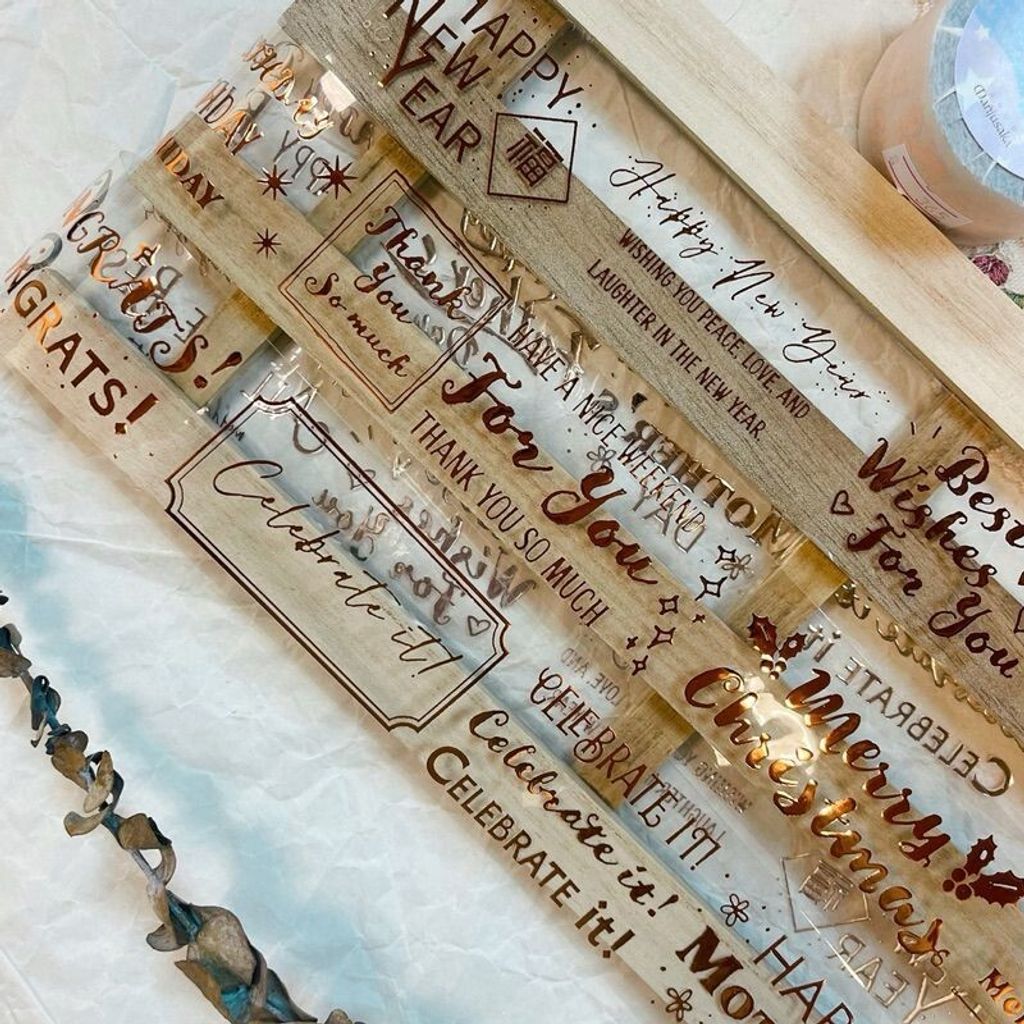 HAPPY
NEW
YEAR
福
Happy New Year
WISHING YOU PEACE, LOVE AND
LAUGHTER IN THE NEW YEAR
Best
Wishes
For You
DAY
DAY
Thank
You
So much
HAVE A NICE WEEKEND
For You
THANK YOU SO MUCH
MOTHER
DAY
Merry
Christmas
CELEBRATE it
NGRATS!
NGRATS!
Celebrate it!
Wishes
For You
CELEBRATE IT!
LOVE, AND
LAUGHTER
Celebrate it!
CELEBRATE it!
YEAR
HAP
MOT
Manjusaka